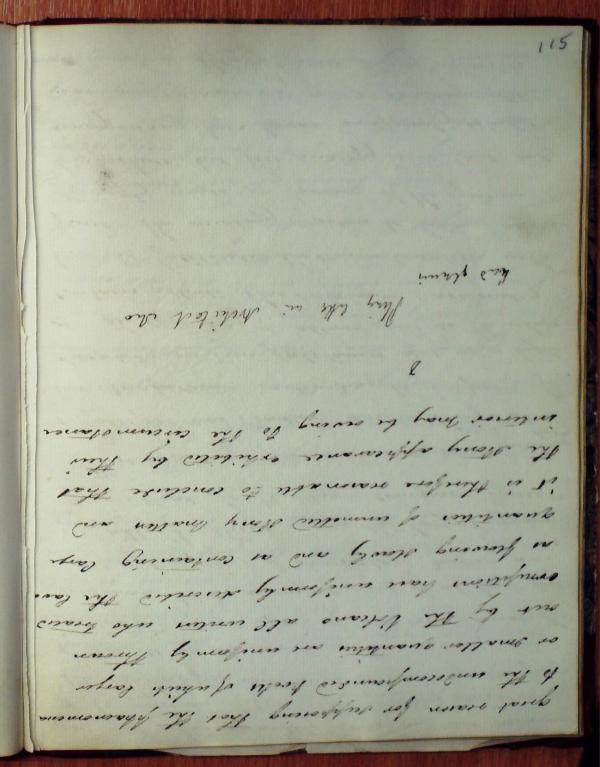 115
great reason for supposing that the phaenomena
to the undecompounded rocks of which larger
or smaller quantities are uniformly thrown
out by the Volcano all writers who treated
erruptions have uniformly described the lava
as flowing slowly and as containing large
quantities of unmelted stony matter and
it is therefore reasonable to conclude that
the stony appearance exhibited by their
interior may be owing to the circumstance
Architect who